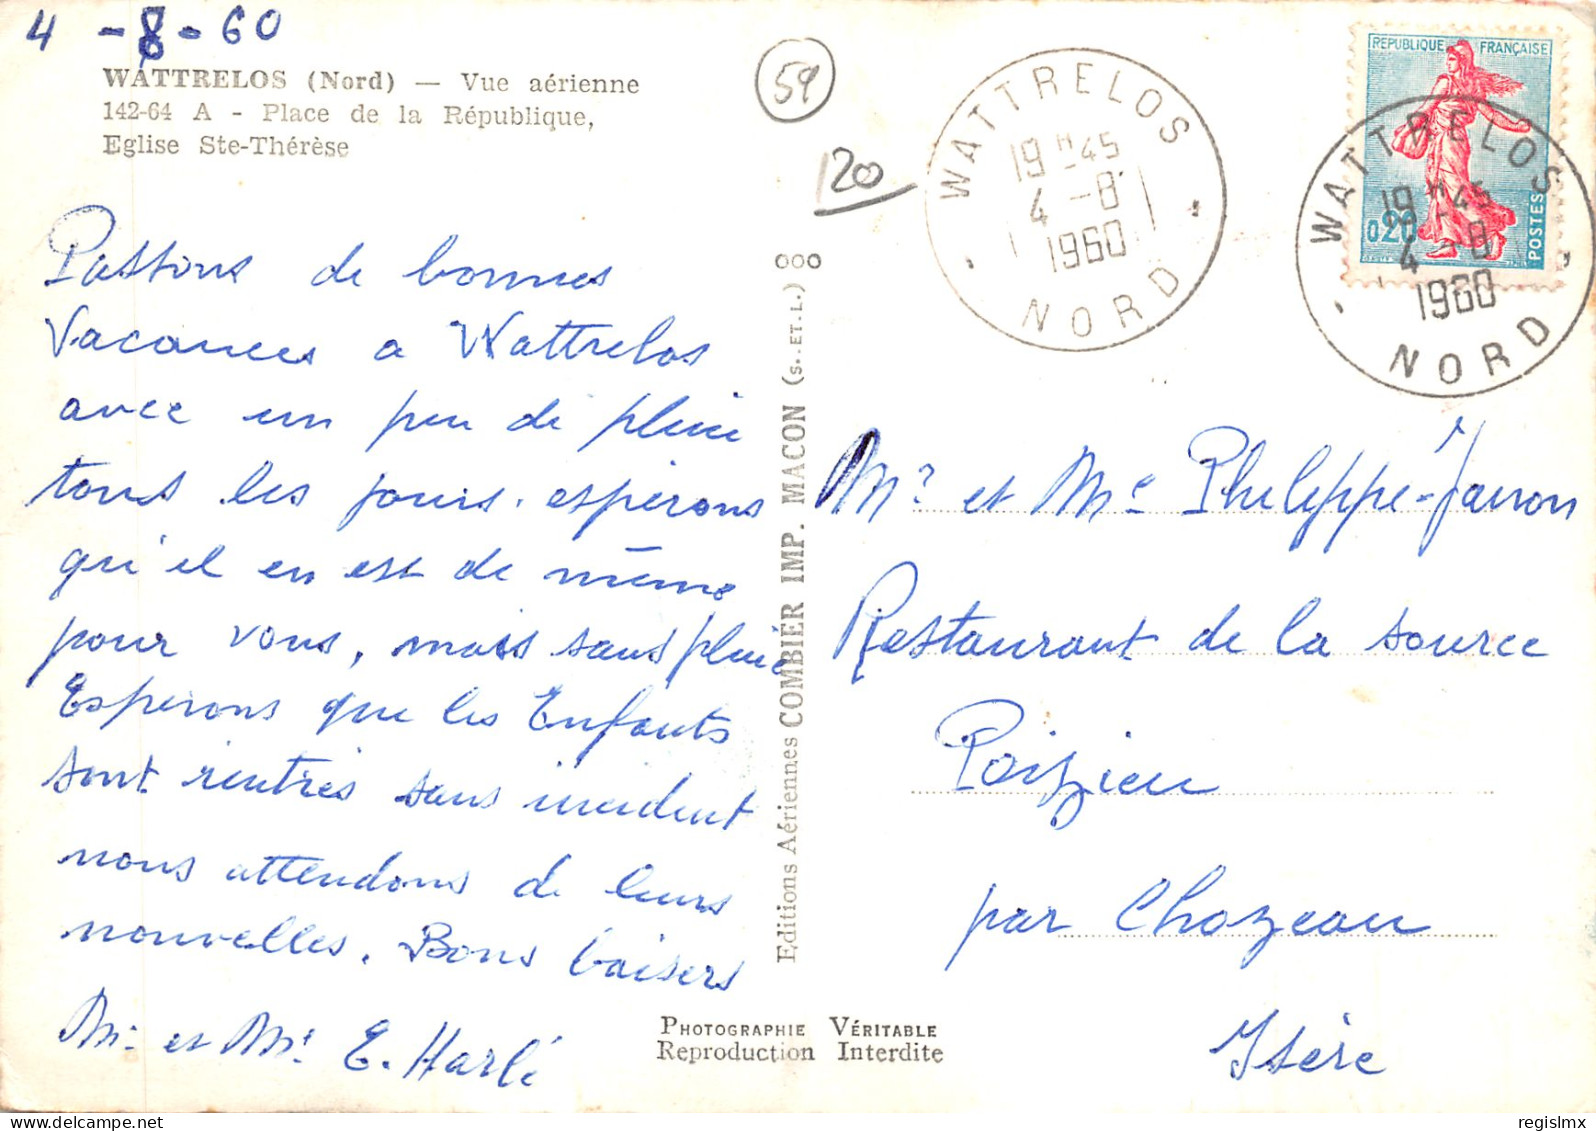 4 -8- 60
WATTRELOS (Nord) — Vue aérienne
142-64 A - Place de la République,
Eglise Ste-Thérèse
59
120
Passons de bonnes
Vacances a Wattrelos
avec un peu de pluie
tous les jours. esperons
qu'il en est de même
pour vous, mais sans pluie
Esperons que les Enfants
sont rentrés sans incident
nous attendons de leurs
nouvelles. Bons baisers
Mr et Me E. Harlé
Editions Aériennes COMBIER IMP. MACON (S.-ET-L.) OOO
PHOTOGRAPHIE VÉRITABLE
Reproduction Interdite
WATTRELOS
19H45
4 -8
1960
NORD
REPUBLIQUE FRANÇAISE
0,20
POSTES
WATTRELOS
19H45
4 -8
1960
NORD
Mr et Me Philippe-Janon
Restaurant de la source
Poizieu
par Chozeau
Isère
regislmx